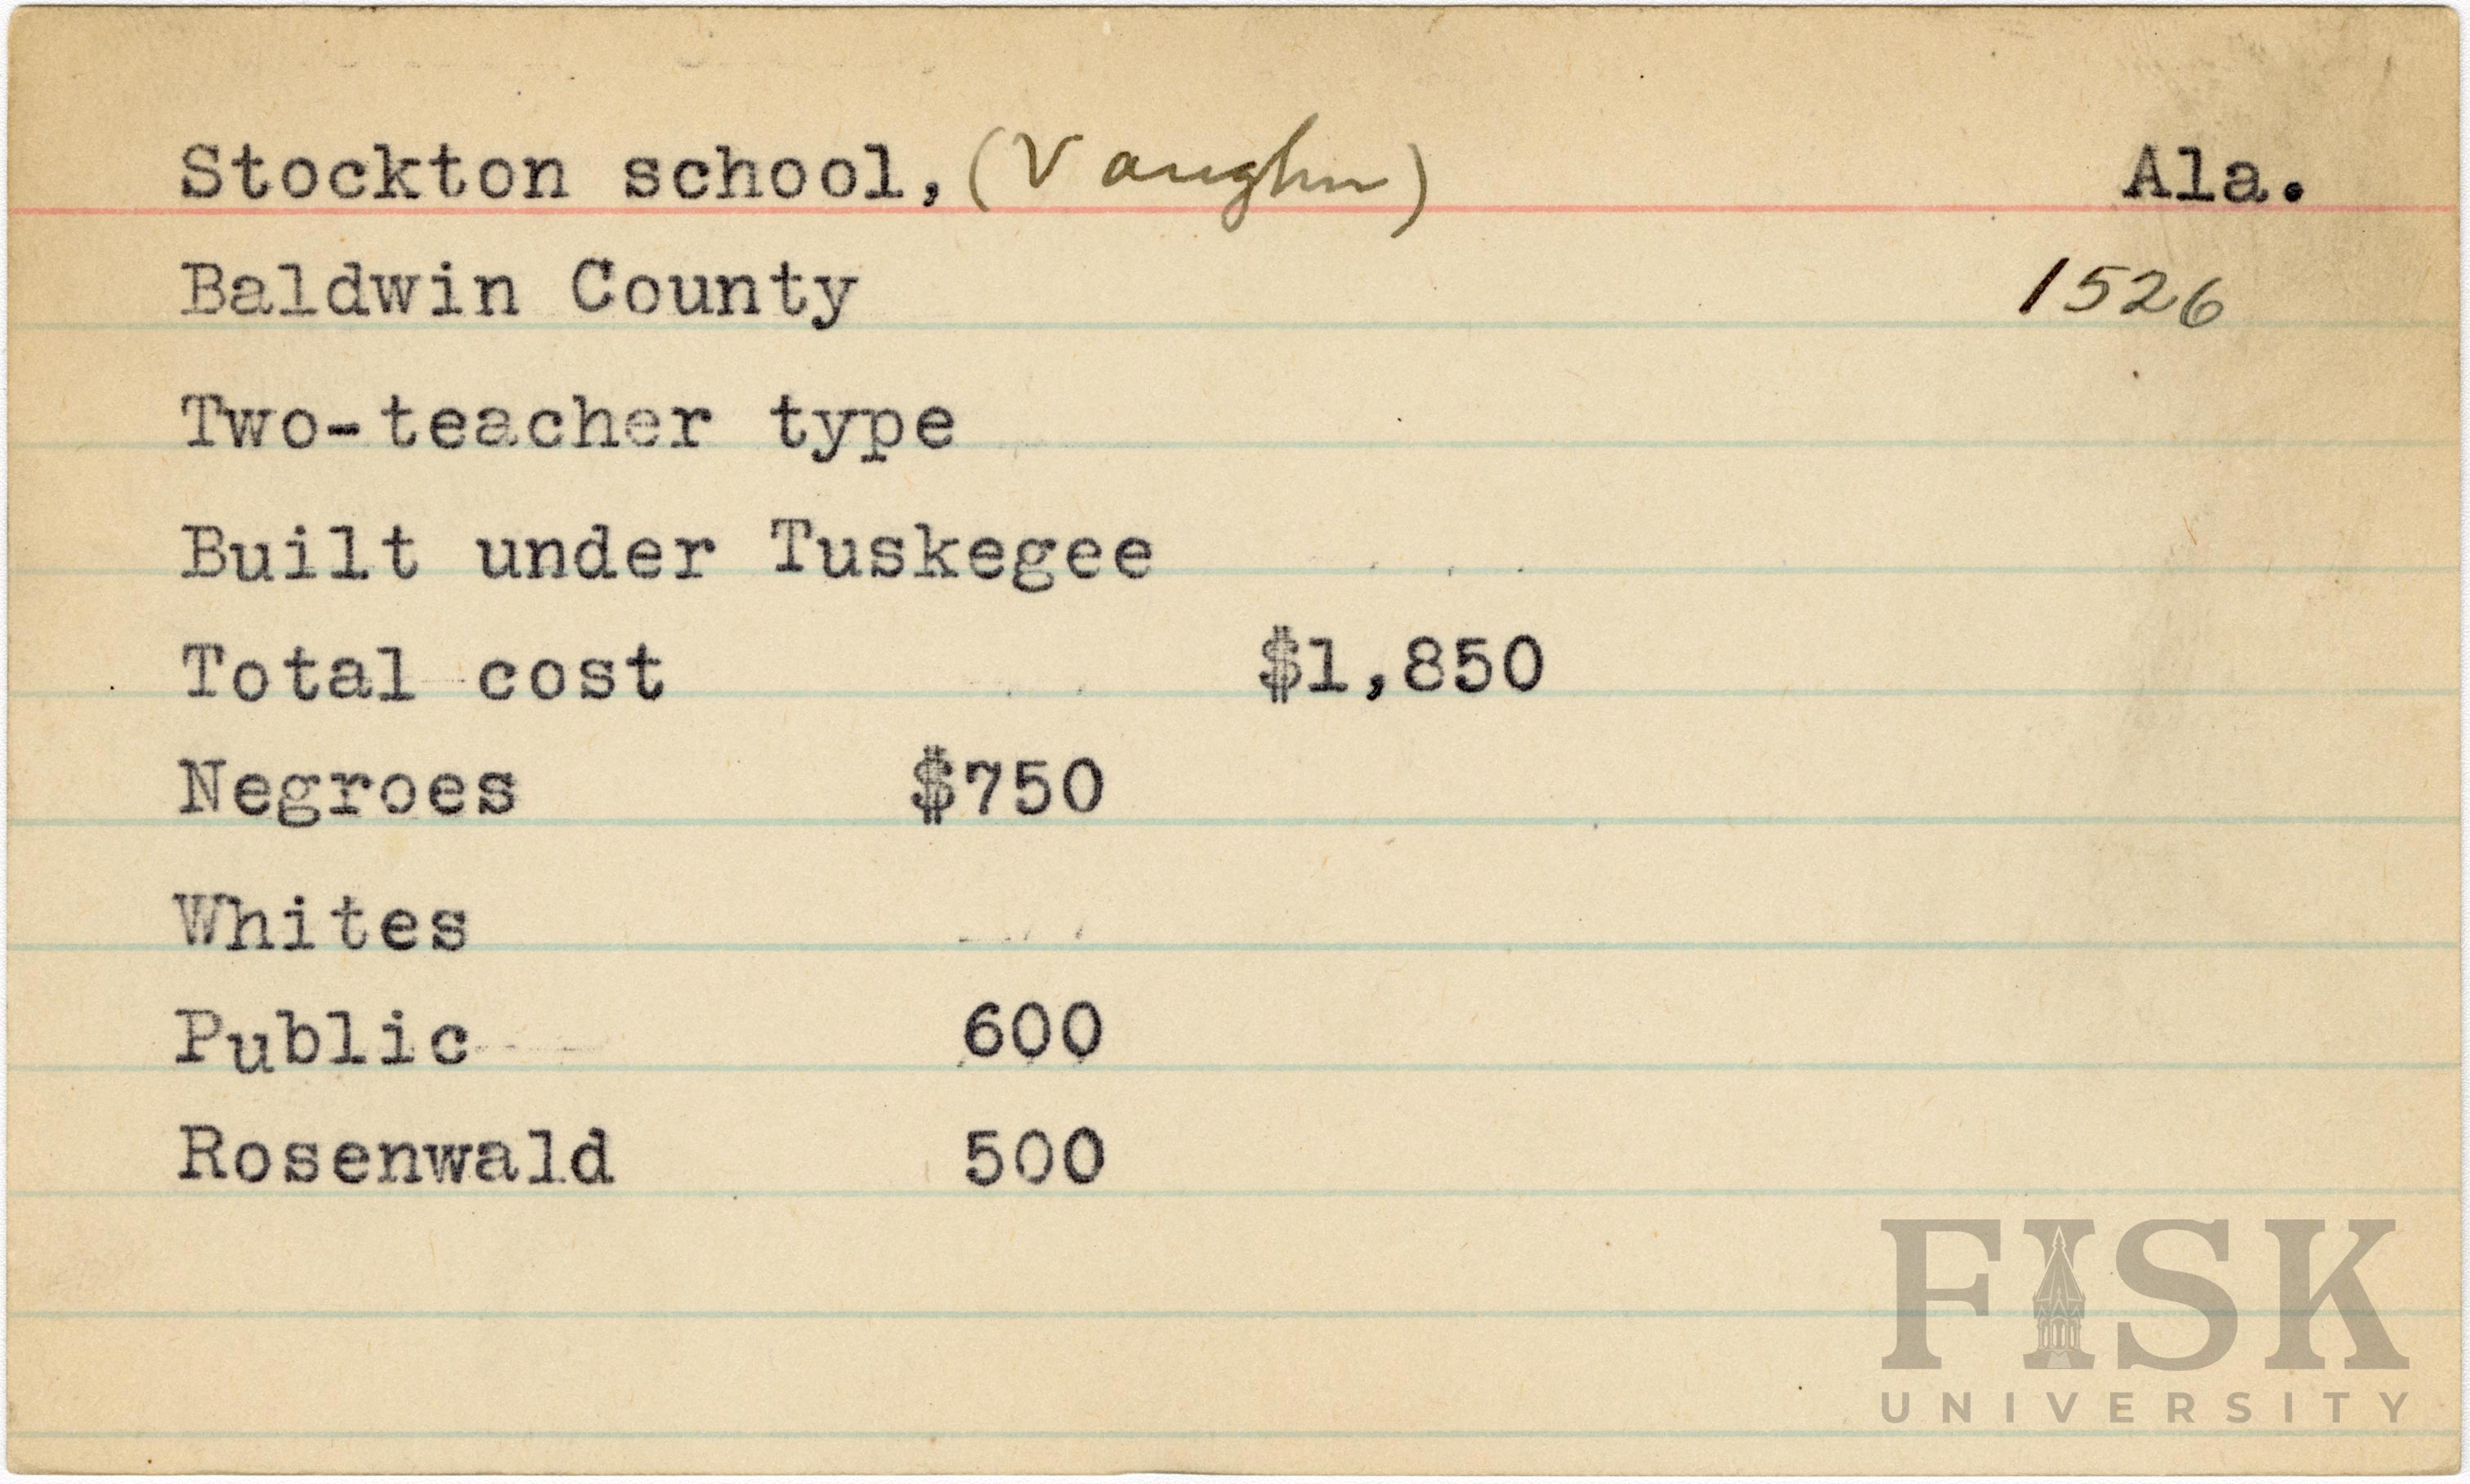 Stockton school, (Vaughn) Ala.
Baldwin County 1526
Two-teacher type
Built under Tuskegee
Total cost $1,850
Negroes $750
Whites
Public 600
Rosenwald 500
FISK
UNIVERSITY